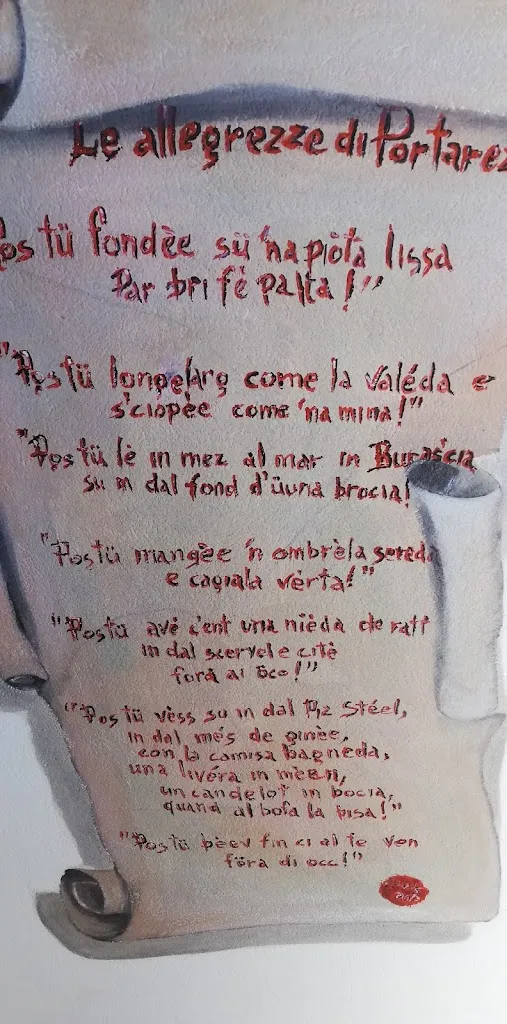 Le allegrezze di Portarez
Pos tü fondèe sü 'na piòta lissa
Par bri fè palta!"
"Pos tü longelarg come la valéda e
s'ciopèe come 'na mina!"
"Pos tü lè in mez al mar in Burascia
su in dal fond d'üuna brocia!
"Pos tü mangèe 'n ombrèla sereda
e cagiala vèrta!"
"Pos tü avé cent una nièda de ratt
in dal scervel e citè
fora ai öcc!"
"Pos tü vèss su in dal Piz Stéel,
in dal més de ginèe,
con la camisa bagneda,
una livéra in mèen,
un candelot in bocia,
quand al bofa la bisa!"
"Pos tü bèev fin ci al te ven
föra di occ!"